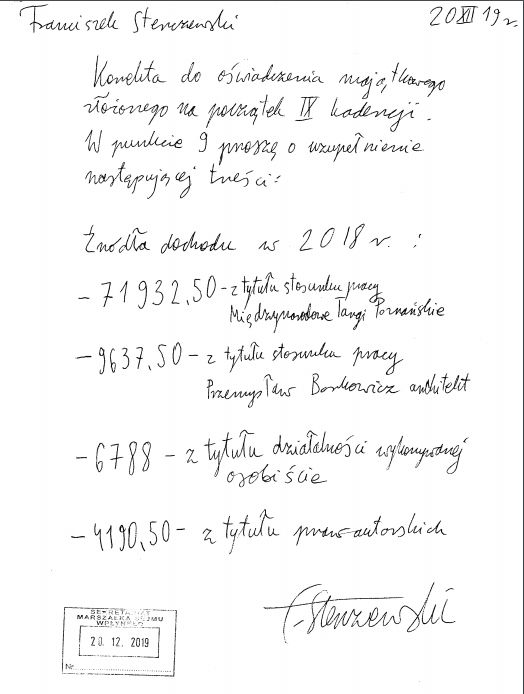 Franciszek Sterczewski
20 XII 19 r.
Korekta do oświadczenia majątkowego
złożonego na początek IX kadencji.
W punkcie 9 proszę o uzupełnienie
następującej treści:
Źródła dochodu w 2018 r. :
- 71932,50 - z tytułu stosunku pracy
Międzynarodowe Targi Poznańskie
- 9637,50 - z tytułu stosunku pracy
Przemysław Borkowicz architekt
- 6788 - z tytułu działalności wykonywanej
osobiście
- 4190,50 - z tytułu praw autorskich
F. Sterczewski
SEKRETARIAT
MARSZAŁKA SEJMU
WPŁYNĘŁO
20. 12. 2019
Nr